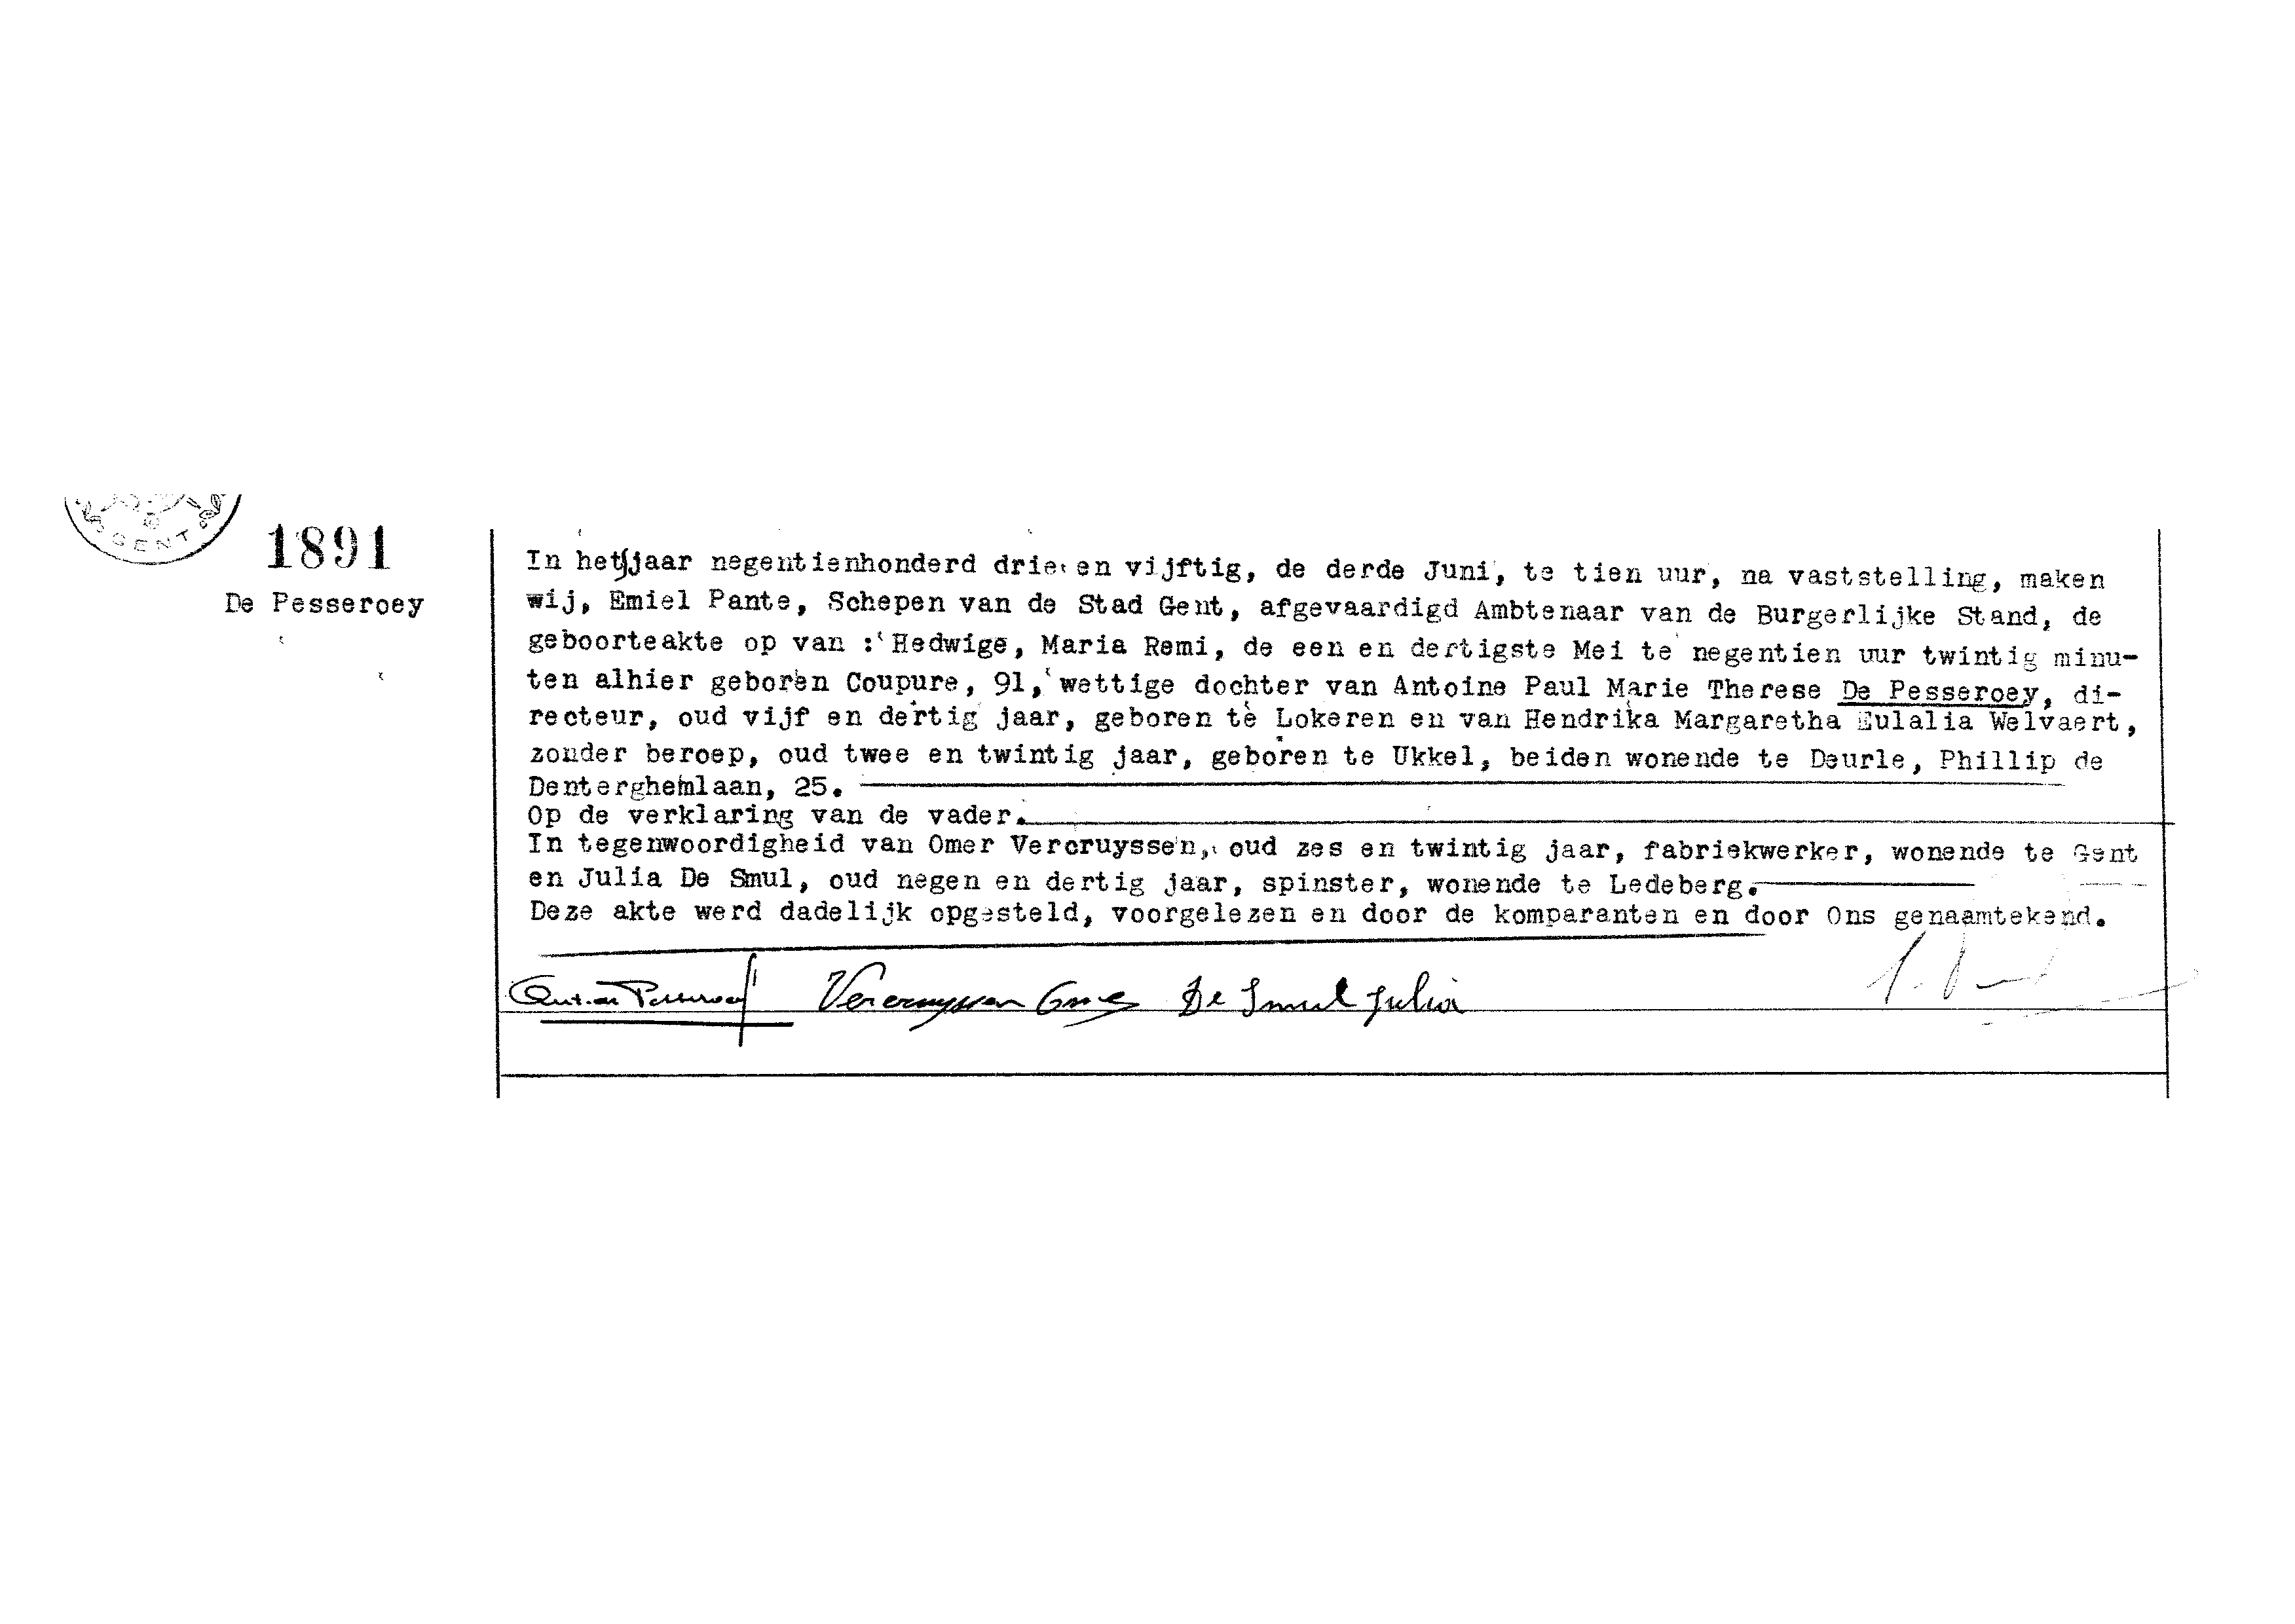 GENT
1891
De Pesseroey
In het jaar negentienhonderd drie en vijftig, de derde Juni, te tien uur, na vaststelling, maken
wij, Emiel Pante, Schepen van de Stad Gent, afgevaardigd Ambtenaar van de Burgerlijke Stand, de
geboorteakte op van : Hedwige, Maria Remi, de een en dertigste Mei te negentien uur twintig minu-
ten alhier geboren Coupure, 91, wettige dochter van Antoine Paul Marie Therese De Pesseroey, di-
recteur, oud vijf en dertig jaar, geboren te Lokeren en van Hendrika Margaretha Eulalia Welvaert,
zonder beroep, oud twee en twintig jaar, geboren te Ukkel, beiden wonende te Deurle, Phillip de
Denterghemlaan, 25.
Op de verklaring van de vader.
In tegenwoordigheid van Omer Vercruyssen, oud zes en twintig jaar, fabriekwerker, wonende te Gent
en Julia De Smul, oud negen en dertig jaar, spinster, wonende te Ledeberg.
Deze akte werd dadelijk opgesteld, voorgelezen en door de komparanten en door Ons genaamtekend.
Vercruyssen Omer De Smul Julia